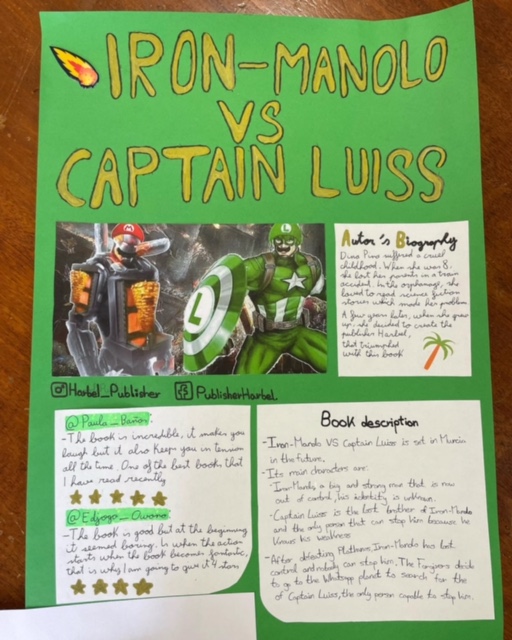 IRON-MANOLO
VS
CAPTAIN LUISS
L
L
Autor's Biography
Dina Pino suffered a cruel
childhood. When she was 8,
she lost her parents in a train
accident. In the orphanage, she
loved to read science fiction
stories which made her problem
A few years later, when she grew
up, she decided to create the
publisher Harbel,
that triumphed
with this book
Harbel_Publisher
PublisherHarbel
@Paula_Baños:
-The book is incredible, it makes you
laugh but it also keep you in tension
all the time. One of the best books that
I have read recently
@Edjogo_Owono
-The book is good but at the beginning
it seemed boring. In when the action
starts when the book becomes fantastic,
that is why I am going to give it 4 stars
Book description
-Iron-Manolo VS Captain Luiss is set in Murcia
in the future.
-Its main characters are:
-Iron-Manolo, a big and strong man that is now
out of control, his identity is unknown.
-Captain Luiss is the lost brother of Iron-Manolo
and the only person that can stop him because he
knows his weakness
-After defeating Plathanos, Iron-Manolo has lost
control and nobody can stop him. The decide
to go to the Whatsapp planet to search for the
of Captain Luiss, the only person capable to stop him.